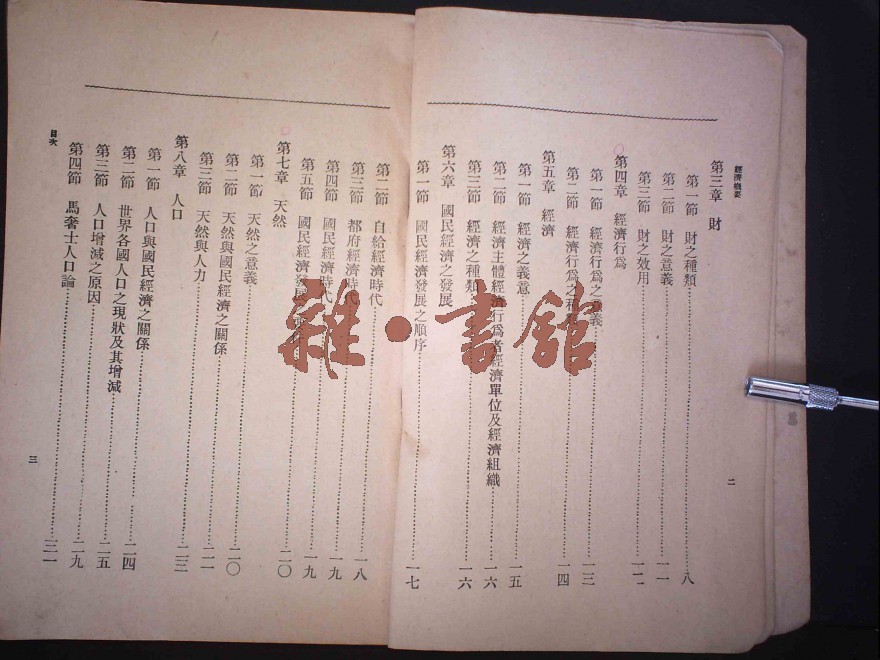 經濟概要
第三章 財
第一節 財之種類 八
第二節 財之意義 一一
第三節 財之效用 一二
第四章 經濟行爲
第一節 經濟行爲之意義 一三
第二節 經濟行爲之種 一四
第五章 經濟
第一節 經濟之意意 一五
第二節 經濟主體經濟行爲者經濟單位及經濟組織 一六
第三節 經濟之種類 一六
第六章 國民經濟之發展
第一節 國民經濟發展之順序 一七
二
第二節 自給經濟時代 一八
第三節 都府經濟時代 一九
第四節 國民經濟時代 一九
第五節 國民經濟發展 二〇
第七章 天然
第一節 天然之意義 二〇
第二節 天然與國民經濟之關係 二〇
第三節 天然與人力 二一
第八章 人口
第一節 人口與國民經濟之關係 二三
第二節 世界各國人口之現狀及其增減 二四
第三節 人口增減之原因 二五
第四節 馬奢士人口論 二九
目次
三一
三
雜·書館